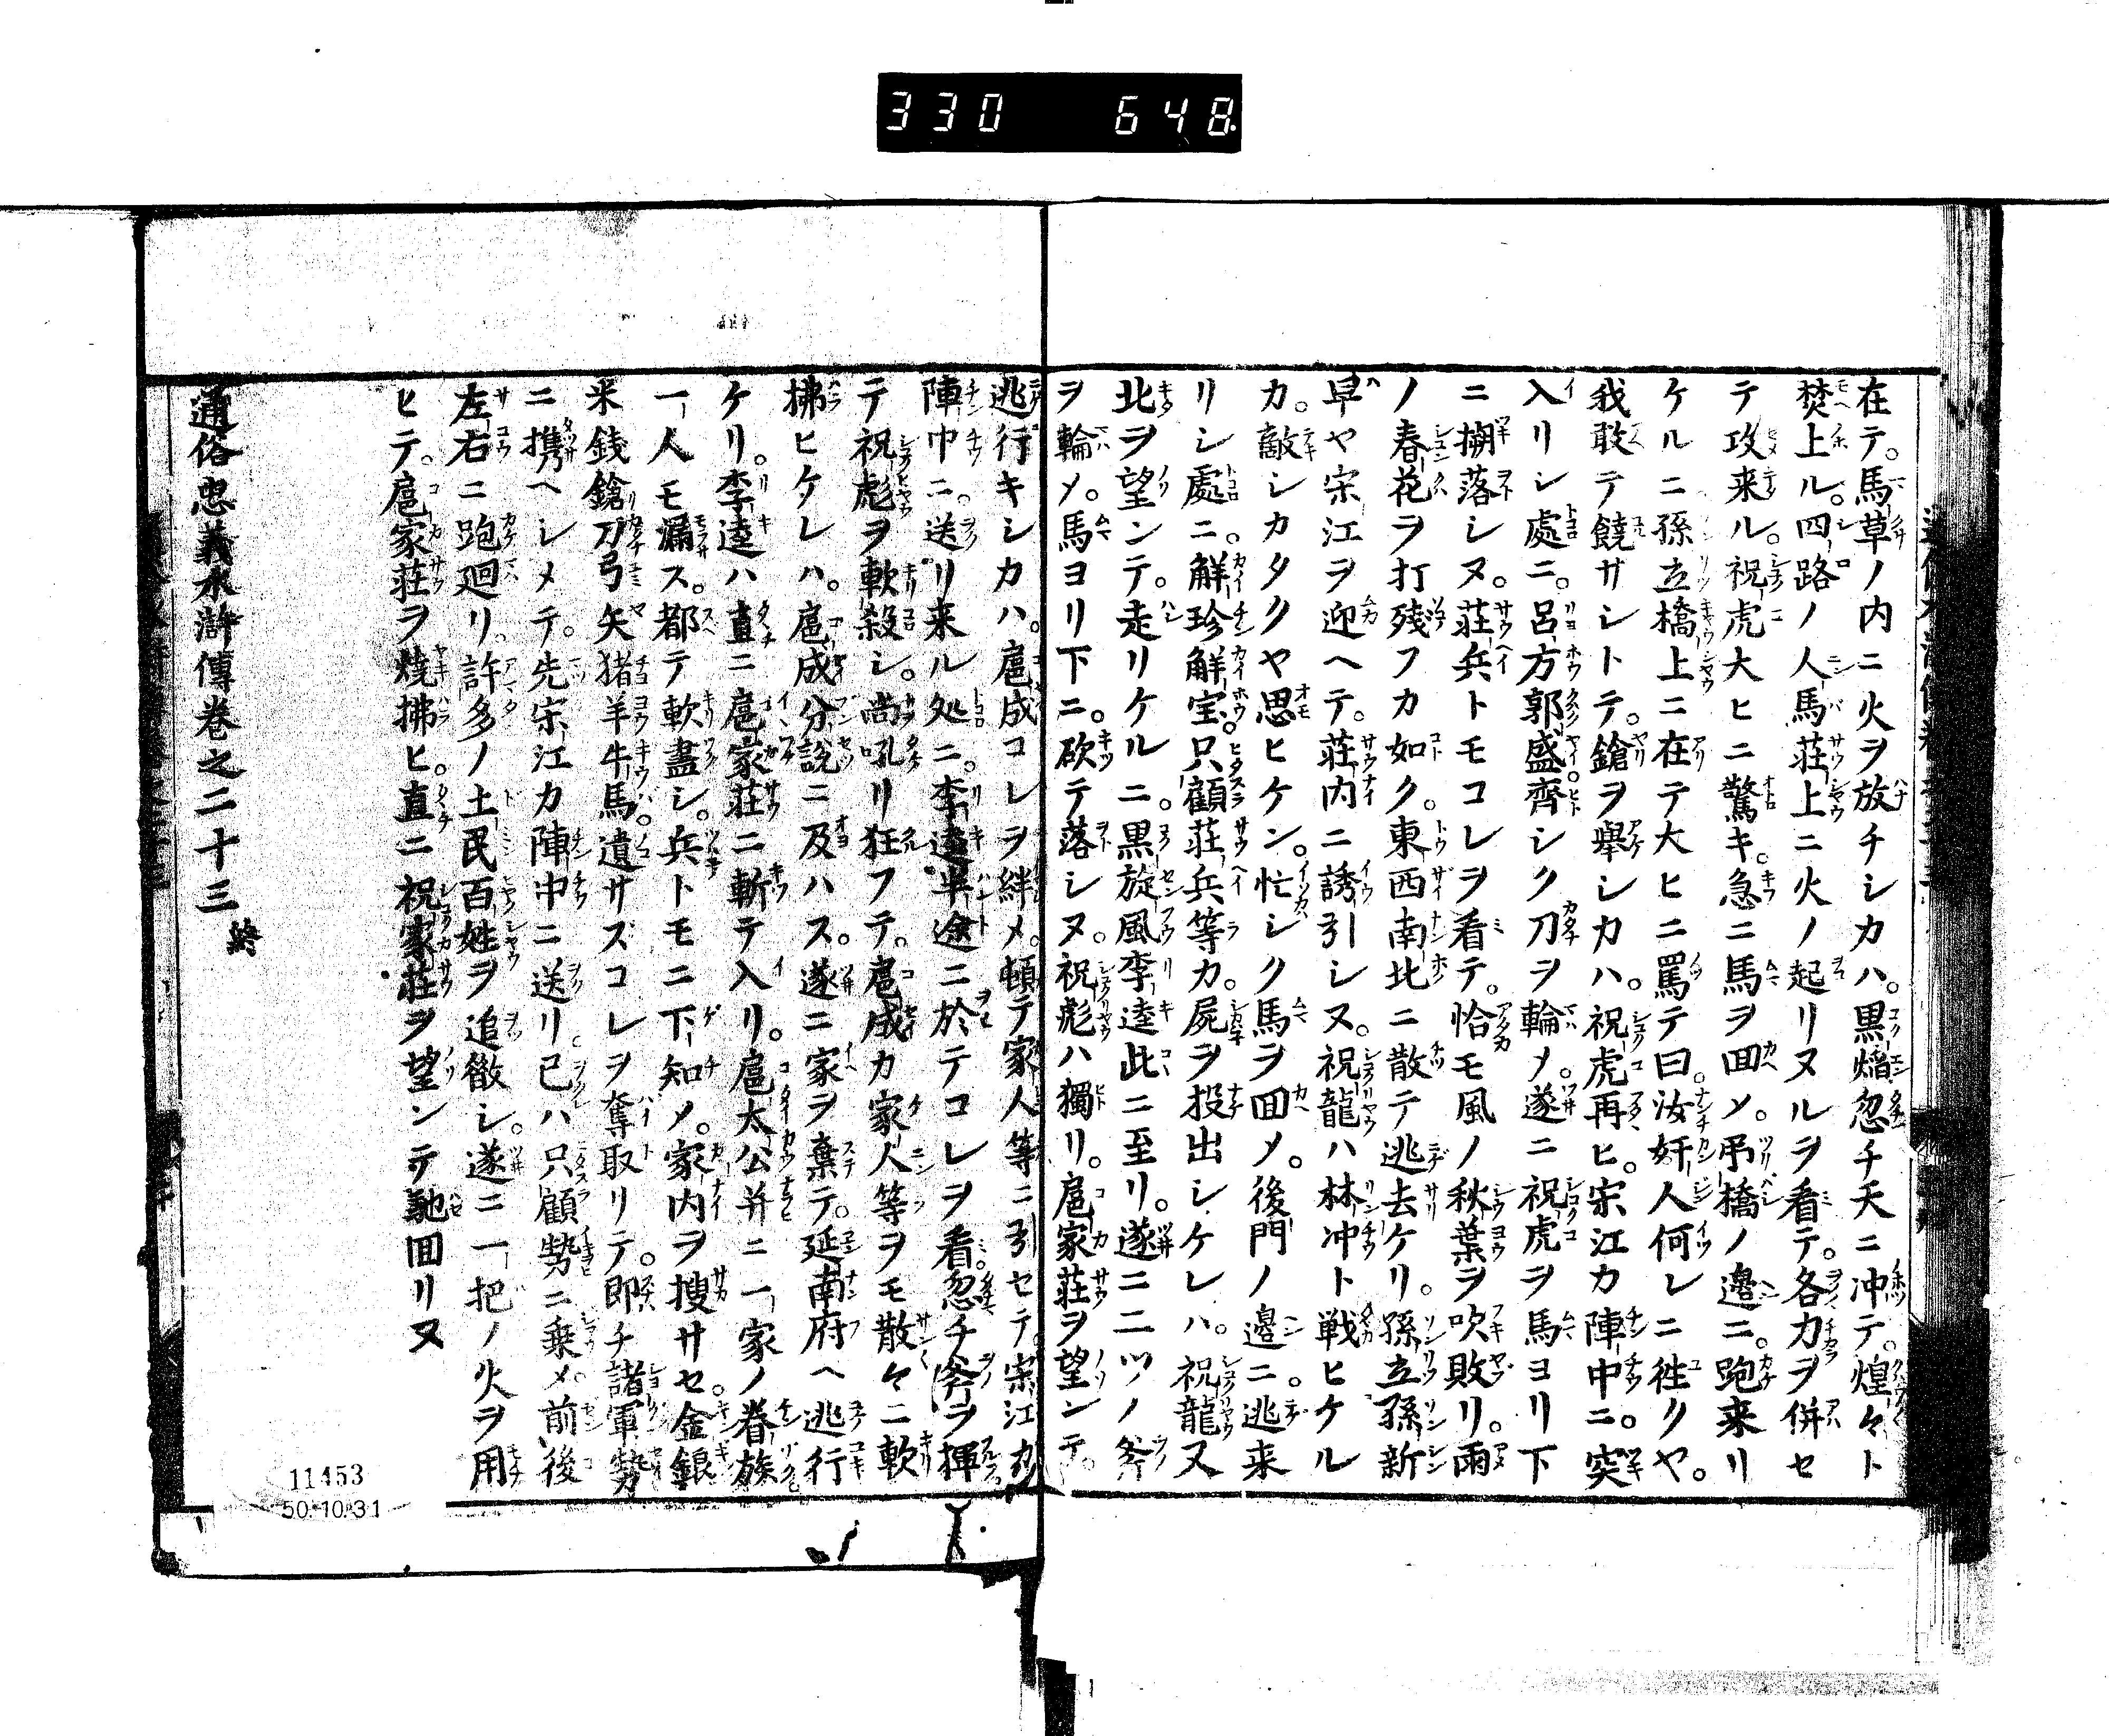 330 648
在テ。馬草ノ内ニ火ヲ放チシカハ。黒焔忽チ天ニ冲テ。煌々ト
焚上ル。四路ノ人馬荘上ニ火ノ起リヌルヲ看テ。各力ヲ併セ
テ攻来ル。祝虎大ヒニ驚キ。急ニ馬ヲ回メ。吊橋ノ邉ニ。跑来リ
ケルニ孫立橋上ニ在テ大ヒニ罵テ曰。汝奸人何レニ徃クヤ。
我敢テ饒サシトテ。鎗ヲ舉シカハ。祝虎再ヒ。宋江カ陣中ニ。突
入リシ處ニ。呂方郭盛齊シク刀ヲ輪メ。遂ニ祝虎ヲ馬ヨリ下
ニ搠落シヌ。荘兵トモコレヲ看テ。恰モ風ノ秋葉ヲ吹敗リ。雨
ノ春花ヲ打残フカ如ク。東西南北ニ散テ逃去ケリ。孫立孫新
早ヤ宋江ヲ迎ヘテ。荘内ニ誘引シヌ。祝龍ハ林冲ト戦ヒケル
カ。敵シカタクヤ思ヒケン。忙シク馬ヲ回メ。後門ノ邉ニ。逃来
リシ處ニ。解珍解宝。只顧荘兵等カ。屍ヲ投出シケレハ。祝龍又
北ヲ望ンテ。走リケルニ。黒旋風李逵此ニ至リ。遂ニ二ツノ斧
ヲ輪メ。馬ヨリ下ニ。砍テ落シヌ。祝彪ハ獨リ。扈家荘ヲ望ンテ。
逃行キシカハ。扈成コレヲ絆メ。頓テ家人等ニ引セテ。宋江カ
陣中ニ。送リ来ル処ニ。李逵半途ニ於テコレヲ看。忽チ斧ヲ揮
テ祝彪ヲ軟殺シ。尚吼リ狂フテ。扈成カ家人等ヲモ散々ニ軟
拂ヒケレハ。扈成分説ニ及ハス。遂ニ家ヲ棄テ。延南府ヘ逃行
ケリ。李逵ハ直ニ扈家荘ニ斬テ入リ。扈太公并ニ一家ノ眷族
一人モ漏ス。都テ軟盡シ。兵トモニ下知メ。家内ヲ搜サセ。金銀
米錢鎗刀弓矢猪羊牛馬遺サズコレヲ奪取リテ。即チ諸軍勢
ニ携ヘシメテ。先宋江カ陣中ニ送リ。己ハ只顧勢ニ乗メ。前後
左右ニ跑廻リ。許多ノ土民百姓ヲ追散シ。遂ニ一把ノ火ヲ用
ヒテ。扈家荘ヲ燒拂ヒ。直ニ祝家荘ヲ望ンテ馳回リヌ
通俗忠義水滸傳巻之二十三 終
11453
50.10.31